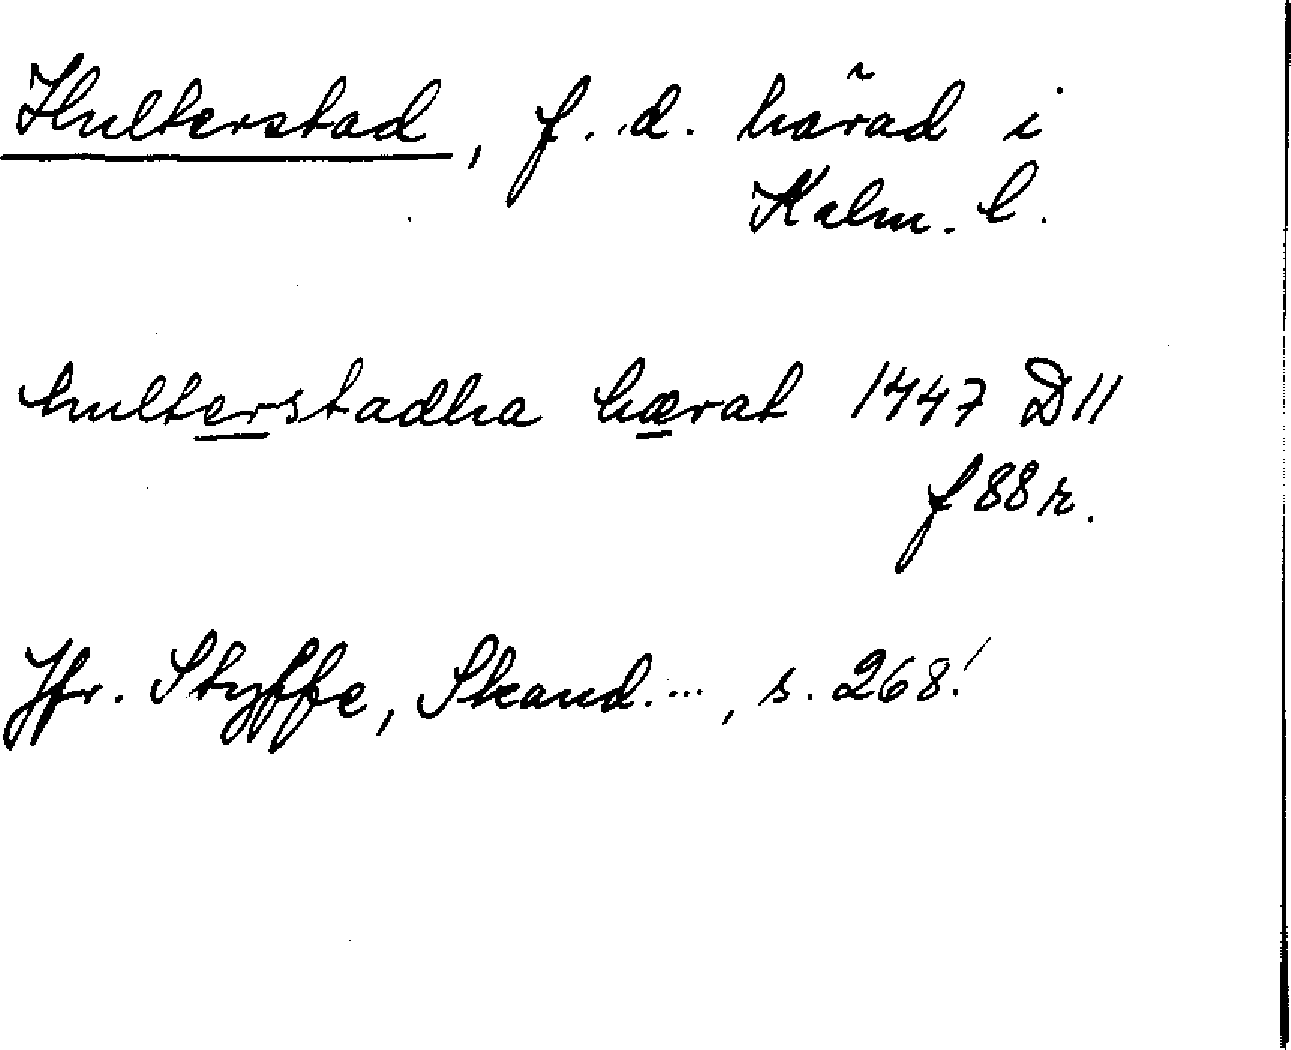 Hulterstad, f. d. härad i
Kalm. l.
hulterstadha hærat 1447 D11
f 88 r.
Jfr. Styffe, Skand. ..., s. 268!